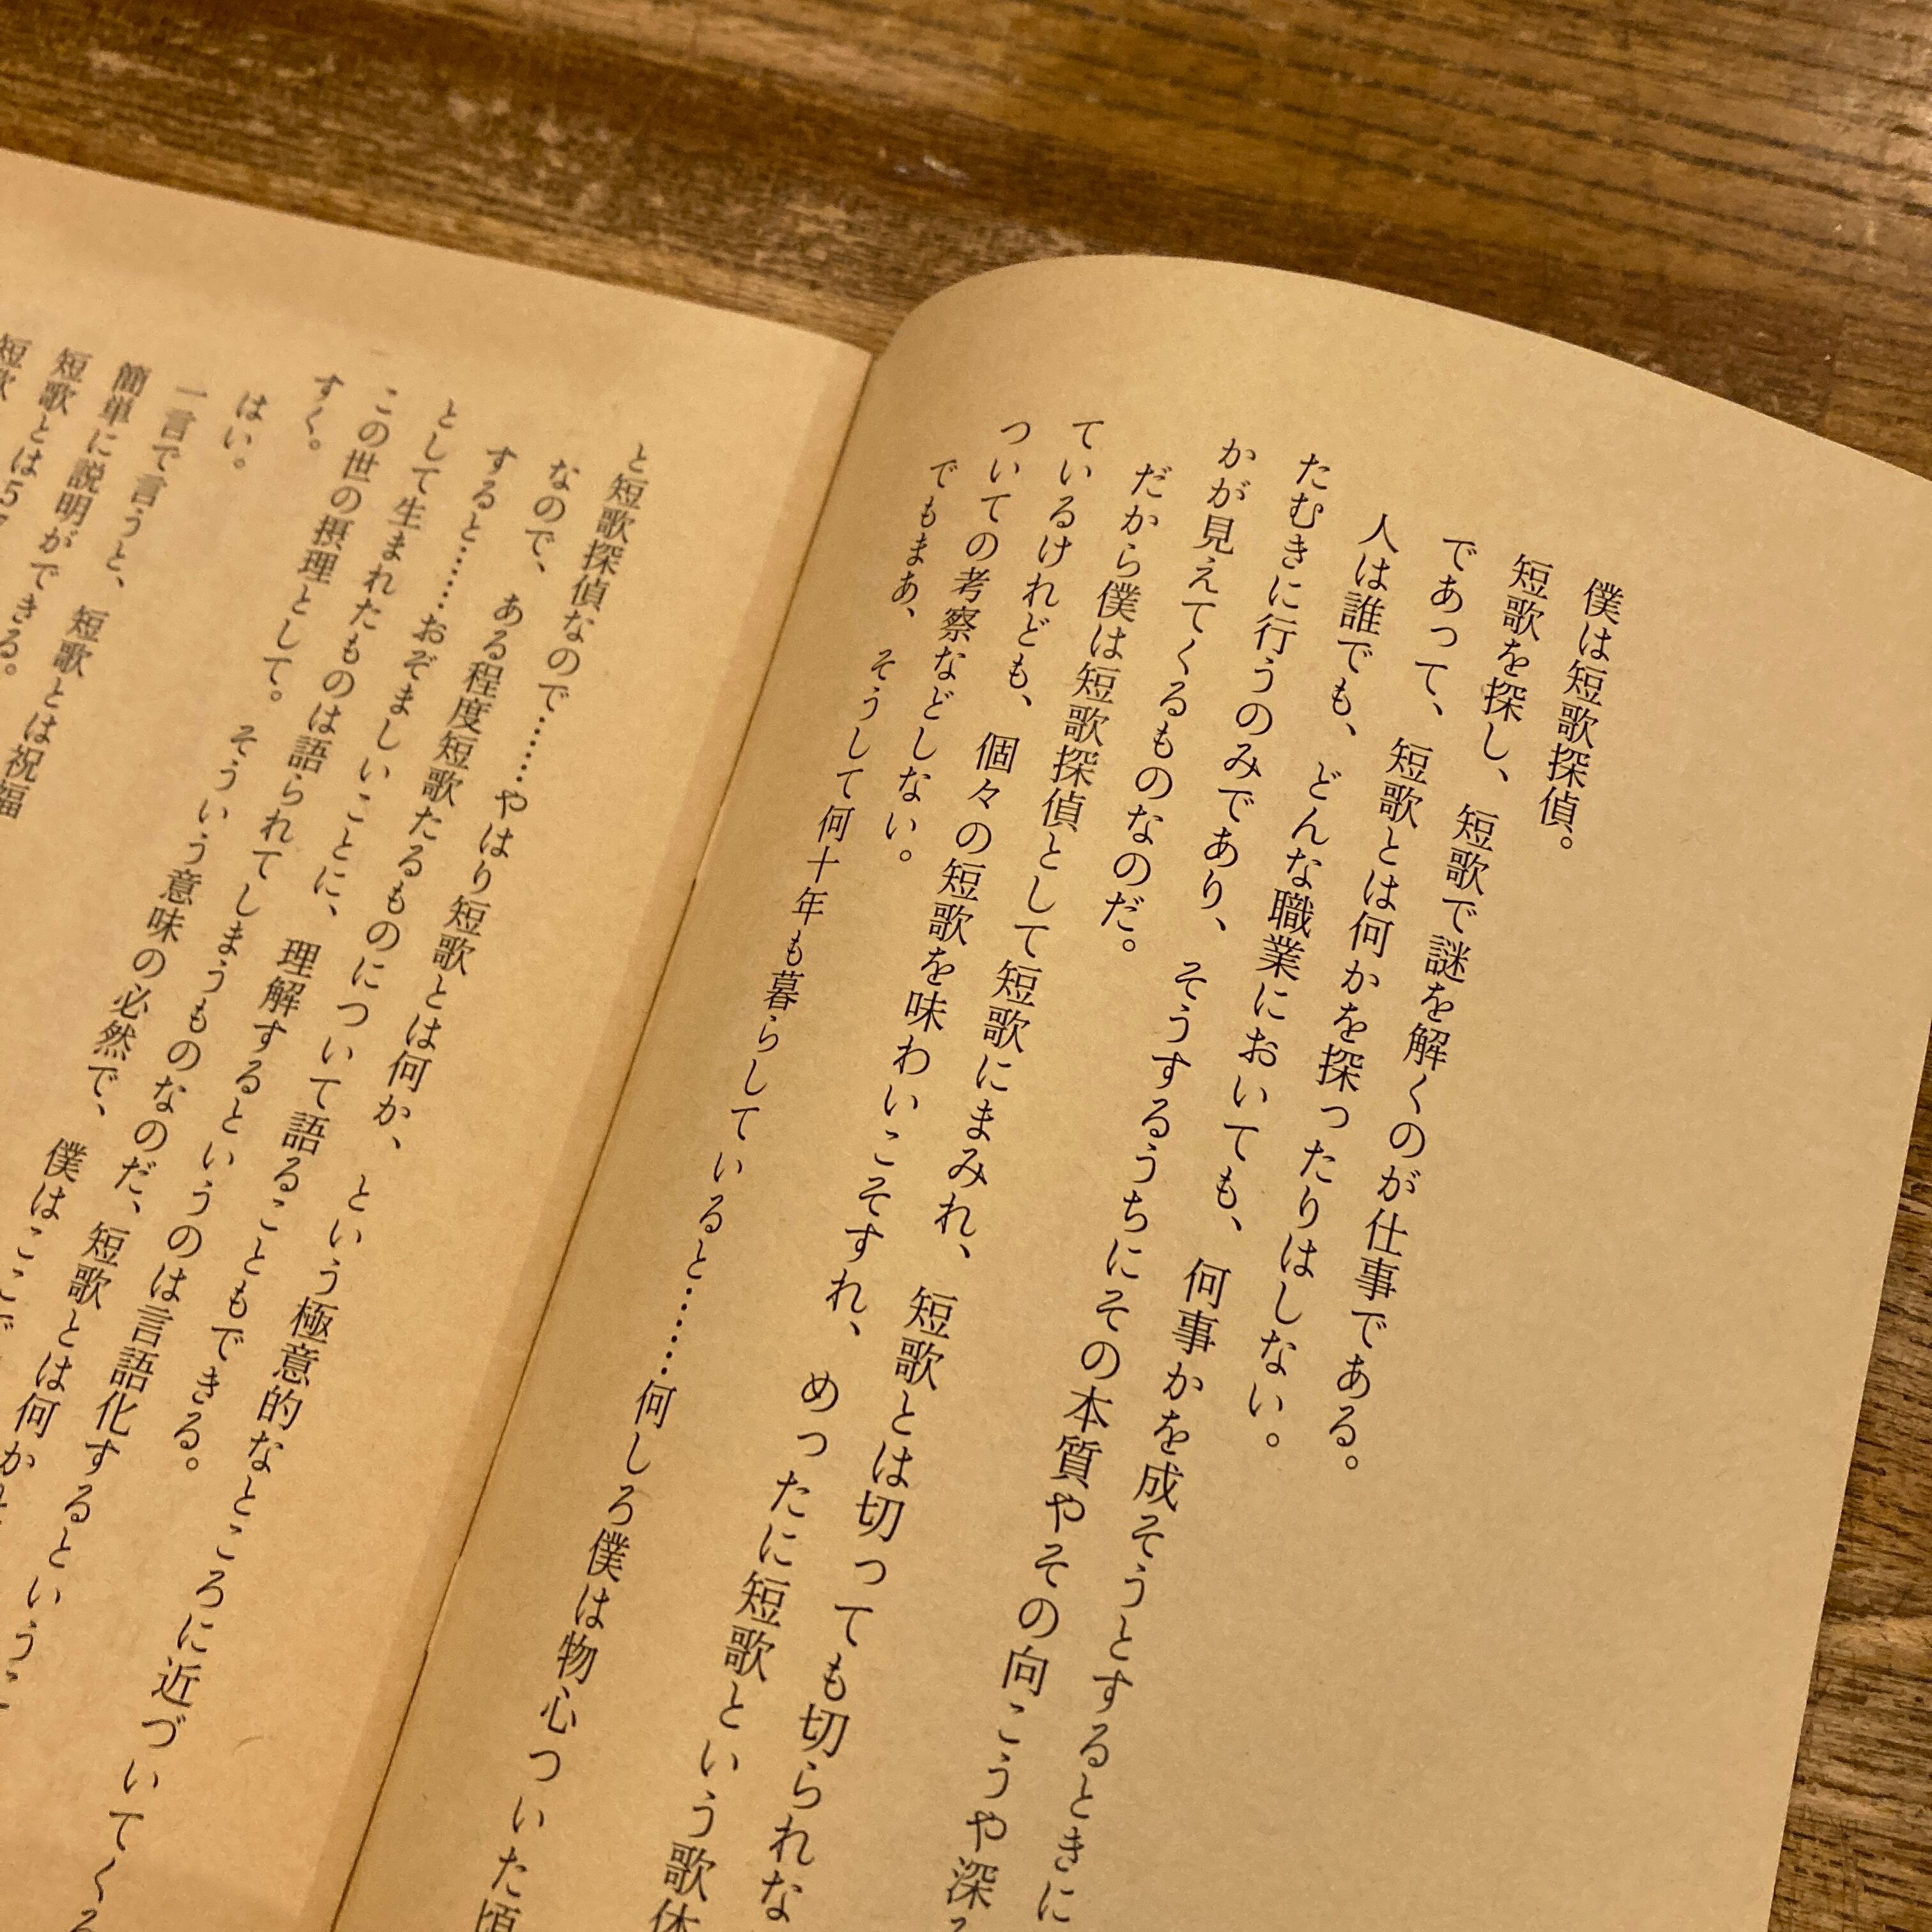 僕は短歌探偵。
短歌を探し、短歌で謎を解くのが仕事である。
であって、短歌とは何かを探ったりはしない。
人は誰でも、どんな職業においても、何事かを成そうとするときに
たむきに行うのみであり、そうするうちにその本質やその向こうや深
かが見えてくるものなのだ。
だから僕は短歌探偵として短歌にまみれ、短歌とは切っても切られな
ているけれども、個々の短歌を味わいこそすれ、めったに短歌という歌体
ついての考察などしない。
でもまあ、そうして何十年も暮らしていると……何しろ僕は物心ついた頃
と短歌探偵なので……やはり短歌とは何か、という極意的なところに近づいてくる
なので、ある程度短歌たるものについて語ることもできる。
すると……おぞましいことに、理解するというのは言語化するという
として生まれたものは語られてしまうものなのだ、短歌とは何か
この世の摂理として。そういう意味の必然で、僕はここで
すく。
はい。
一言で言うと、短歌とは祝福
簡単に説明ができる。
短歌とは5
短歌